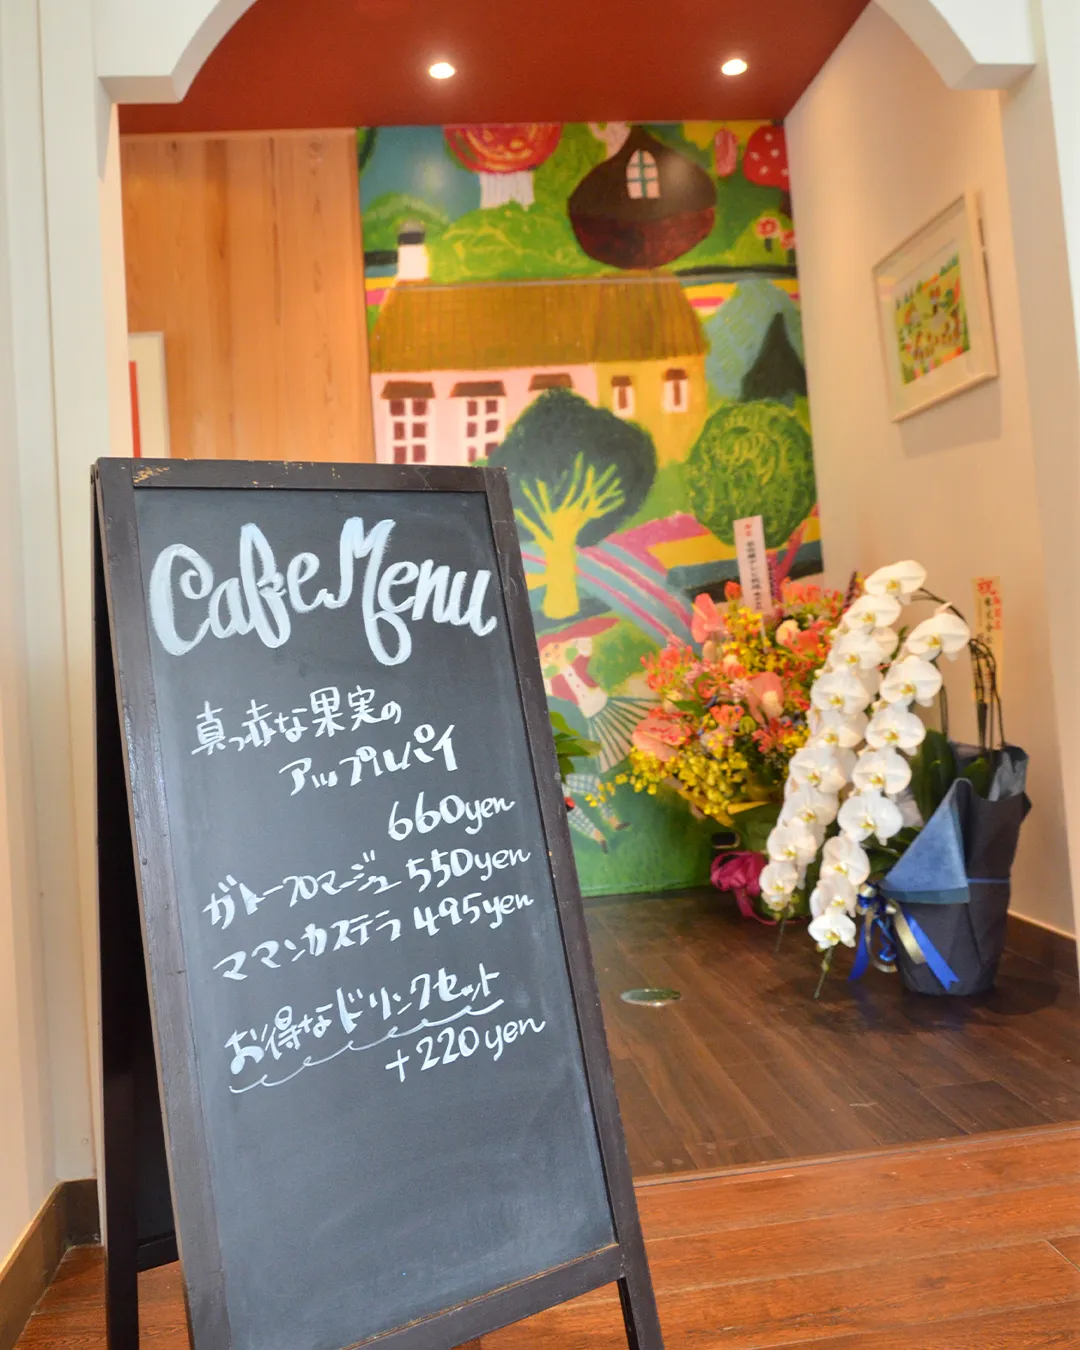 Cafe Menu
真っ赤な果実の
アップルパイ
660yen
ガトーフロマージュ 550yen
ママンカステラ 495yen
お得なドリンクセット
+220yen
祝